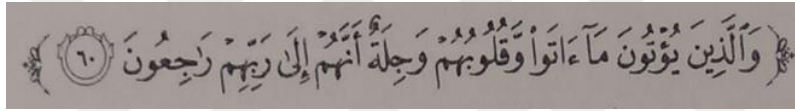 ﴿ وَٱلَّذِينَ يُؤْتُونَ مَآ ءَاتَوا۟ وَّقُلُوبُهُمْ وَجِلَةٌ أَنَّهُمْ إِلَىٰ رَبِّهِمْ رَٰجِعُونَ ٦٠ ﴾